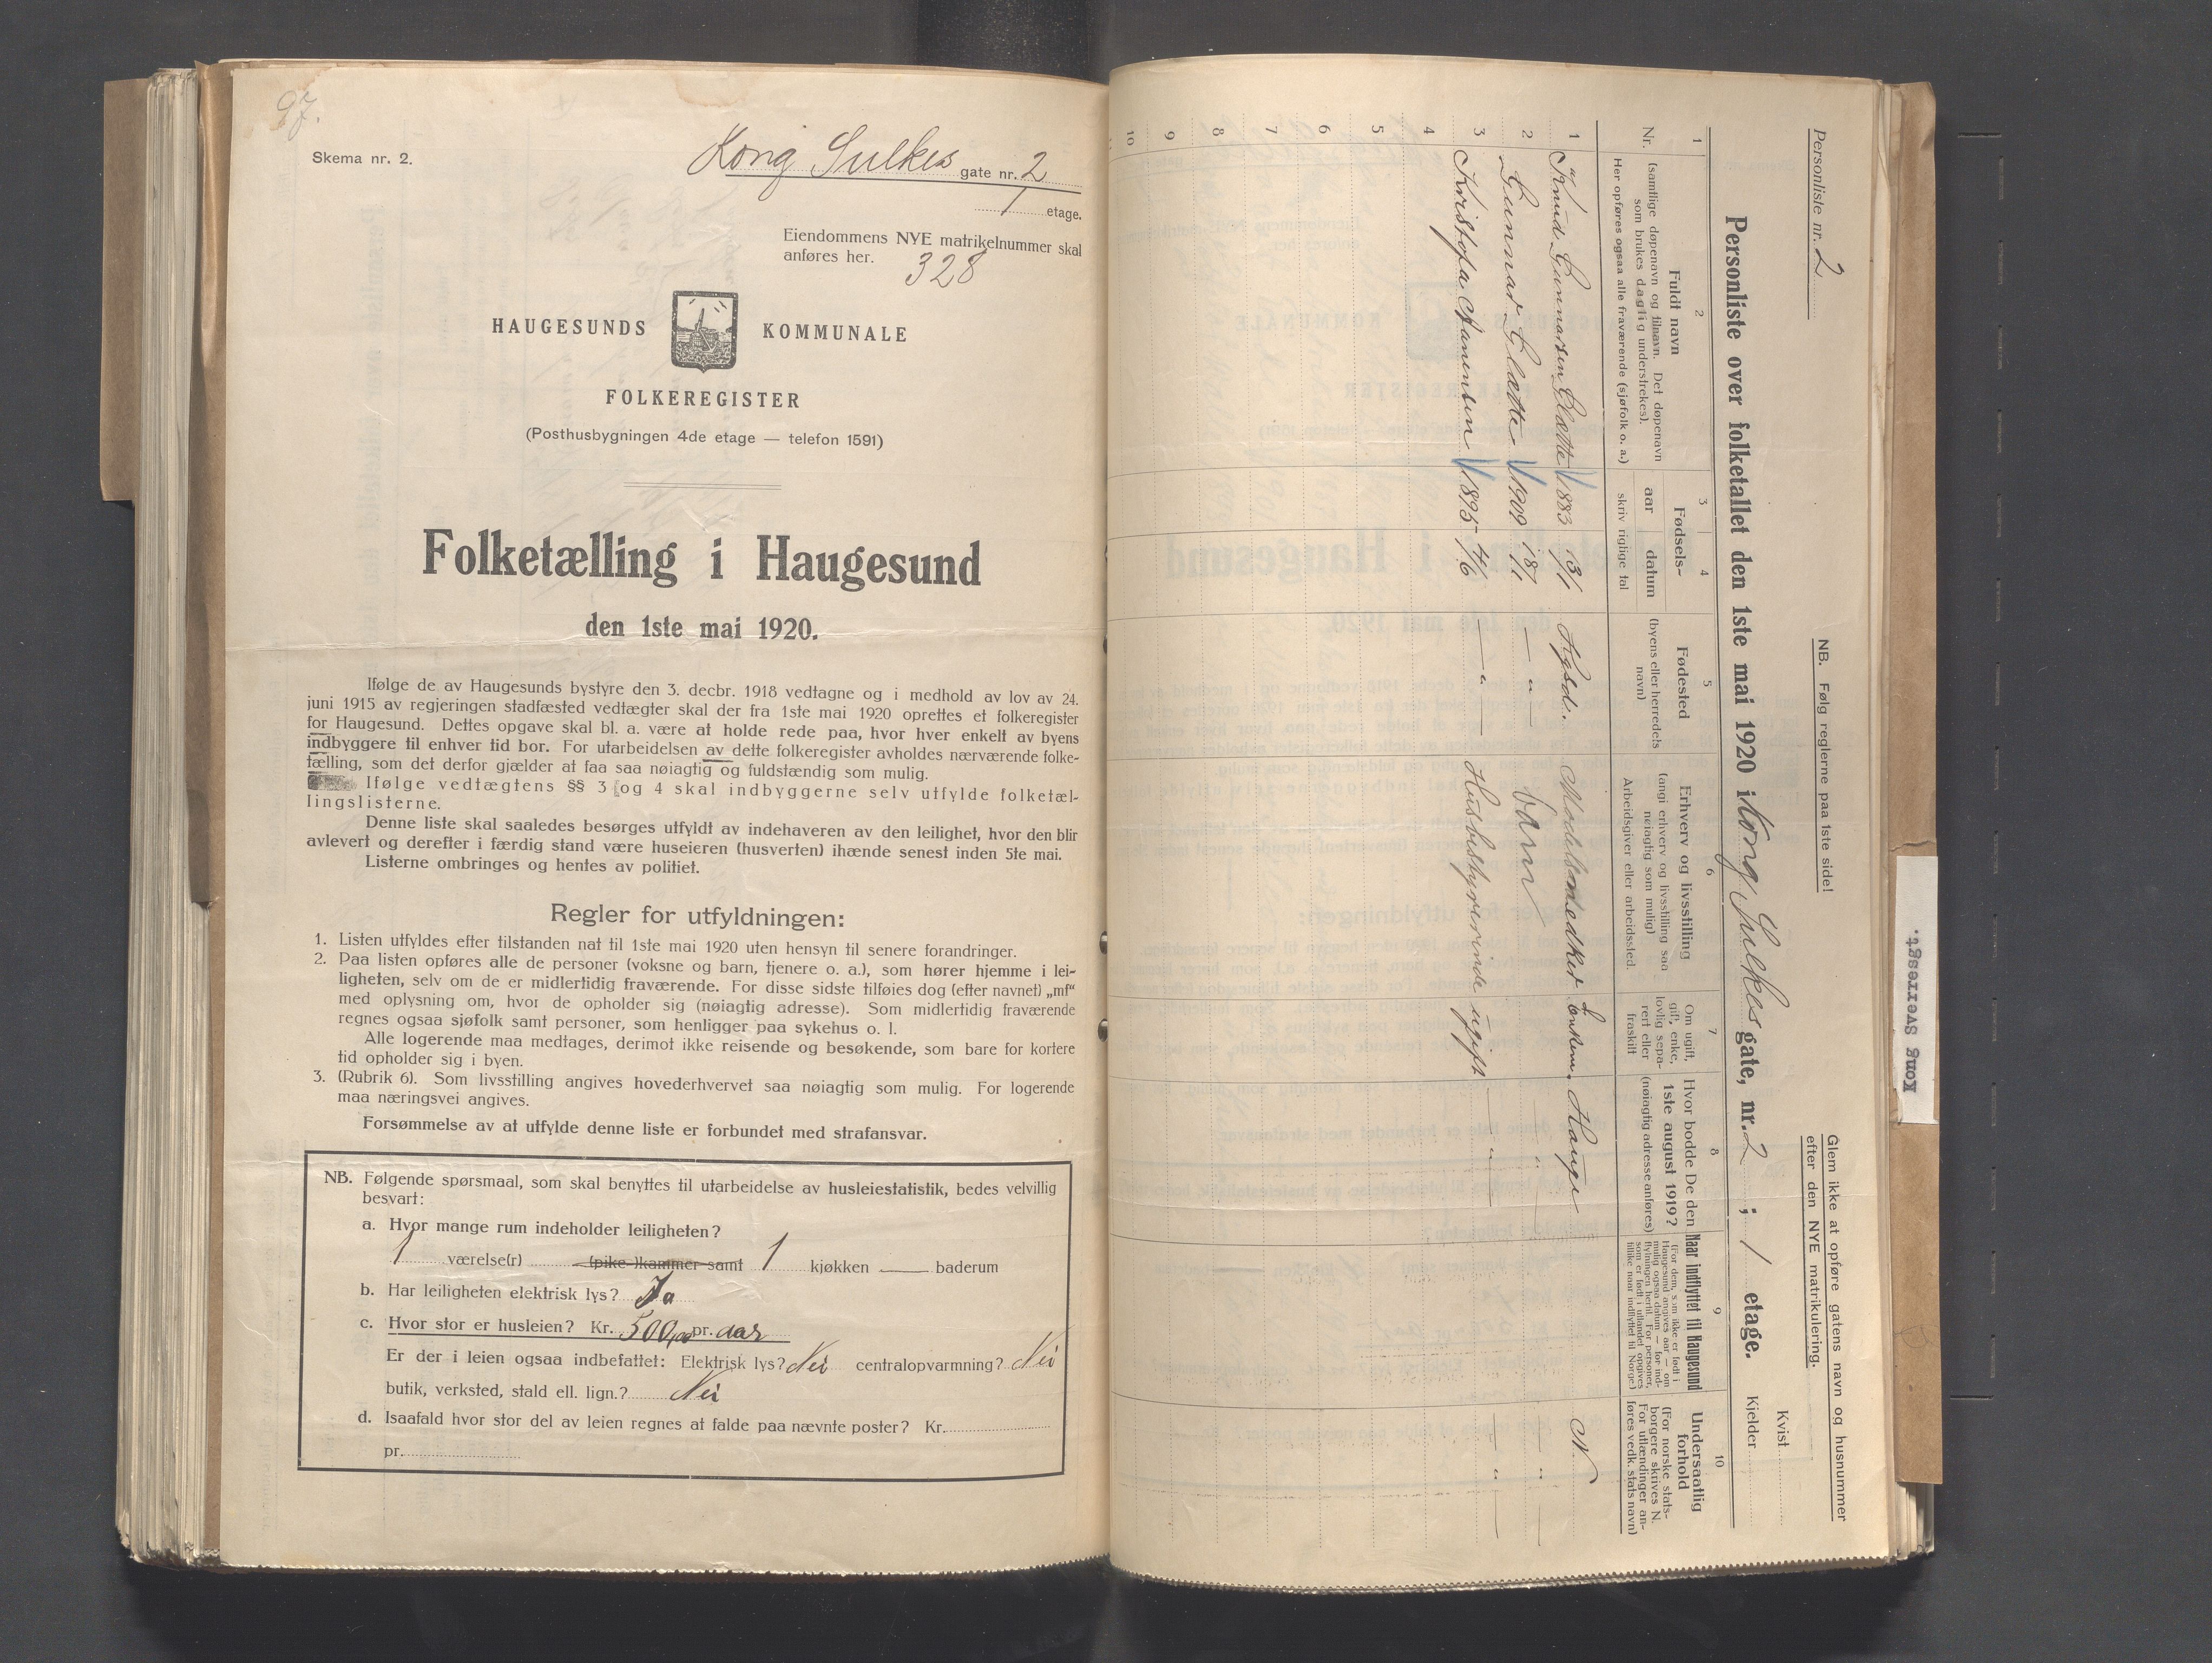 97.
Skema nr. 2.
Kong Sulkes gate nr. 2
1 etage.
Eiendommens NYE matrikelnummer skal
anføres her. 328
HAUGESUNDS KOMMUNALE
FOLKEREGISTER
(Posthusbygningen 4de etage — telefon 1591)
Folketælling i Haugesund
den 1ste mai 1920.
Ifølge de av Haugesunds bystyre den 3. decbr. 1918 vedtagne og i medhold av lov av 24.
juni 1915 av regjeringen stadfæsted vedtægter skal der fra 1ste mai 1920 oprettes et folkeregister
for Haugesund. Dettes opgave skal bl. a. være at holde rede paa, hvor hver enkelt av byens
indbyggere til enhver tid bor. For utarbeidelsen av dette folkeregister avholdes nærværende folke-
tælling, som det derfor gjælder at faa saa nøiagtig og fuldstændig som mulig.
Ifølge vedtægtens §§ 3 og 4 skal indbyggerne selv utfylde folketæl-
lingslisterne.
Denne liste skal saaledes besørges utfyldt av indehaveren av den leilighet, hvor den blir
avlevert og derefter i færdig stand være huseieren (husverten) ihænde senest inden 5te mai.
Listerne ombringes og hentes av politiet.
Regler for utfyldningen:
1. Listen utfyldes efter tilstanden nat til 1ste mai 1920 uten hensyn til senere forandringer.
2. Paa listen opføres alle de personer (voksne og barn, tjenere o. a.), som hører hjemme i lei-
ligheten, selv om de er midlertidig fraværende. For disse sidste tilføies dog (efter navnet) „mf“
med oplysning om, hvor de opholder sig (nøiagtig adresse). Som midlertidig fraværende
regnes ogsaa sjøfolk samt personer, som henligger paa sykehus o. l.
Alle logerende maa medtages, derimot ikke reisende og besøkende, som bare for kortere
tid opholder sig i byen.
3. (Rubrik 6). Som livsstilling angives hovederhvervet saa nøiagtig som mulig. For logerende
maa næringsvei angives.
Forsømmelse av at utfylde denne liste er forbundet med strafansvar.
NB. Følgende spørsmaal, som skal benyttes til utarbeidelse av husleiestatistik, bedes velvillig
besvart:
a. Hvor mange rum indeholder leiligheten?
1 værelse(r) (pike-)kammer samt 1 kjøkken — baderum
b. Har leiligheten elektrisk lys? Ja
c. Hvor stor er husleien? Kr. 500,00 pr. aar
Er der i leien ogsaa indbefattet: Elektrisk lys? Nei centralopvarmning? Nei
butik, verksted, stald ell. lign.? Nei
d. Isaafald hvor stor del av leien regnes at falde paa nævnte poster? Kr.
pr.
Personliste nr. 2
NB. Følg reglerne paa 1ste side!
Glem ikke at opføre gatens navn og husnummer
efter den NYE matrikulering.
Personliste over folketallet den 1ste mai 1920 i Kong Sulkes gate, nr. 2 ; 1 etage.
Kvist
Kjelder
1 2 3 4 5 6 7 8 9 10
Nr.
Fuldt navn
(samtlige døpenavn og tilnavn. Det døpenavn
som brukes daglig understrekes).
Her opføres ogsaa alle fraværende (sjøfolk o. a.)
Fødsels-
aar datum
skriv rigtige tal
Fødested
(byens eller herredets
navn)
Erhverv og livsstilling
(angi erhverv og livsstilling saa
nøiagtig som mulig)
Arbeidsgiver eller arbeidssted.
Om ugift,
gift, enke,
lovlig sepa-
rert eller
fraskilt
Hvor bodde De den
1ste august 1919?
(nøiagtig adresse anføres)
Naar indflyttet til Haugesund
(For dem, som ikke er født i
Haugesund angives aar — om
mulig ogsaa datum — for ind-
flytningen hertil. For personer,
som er født i utlandet opgives
tillike naar indflyttet til Norge)
Undersaatlig
forhold
(For norske stats-
borgere skrives N.
For utlændinger an-
føres vedk. stats navn)
1 Knud Gunnarsen Slætte 1883 13/1 Hgsd. Modelsnedker Enkem. Hauge N.
2 Gunnar Slætte 1909 18/1 — " — barn — " — — " —
3 Kristofa Hanensen 1895 4/6 — " — Husbestyrerinde ugift — " — — " —
4
5
6
7
8
9
10
Kong Sverresgt.